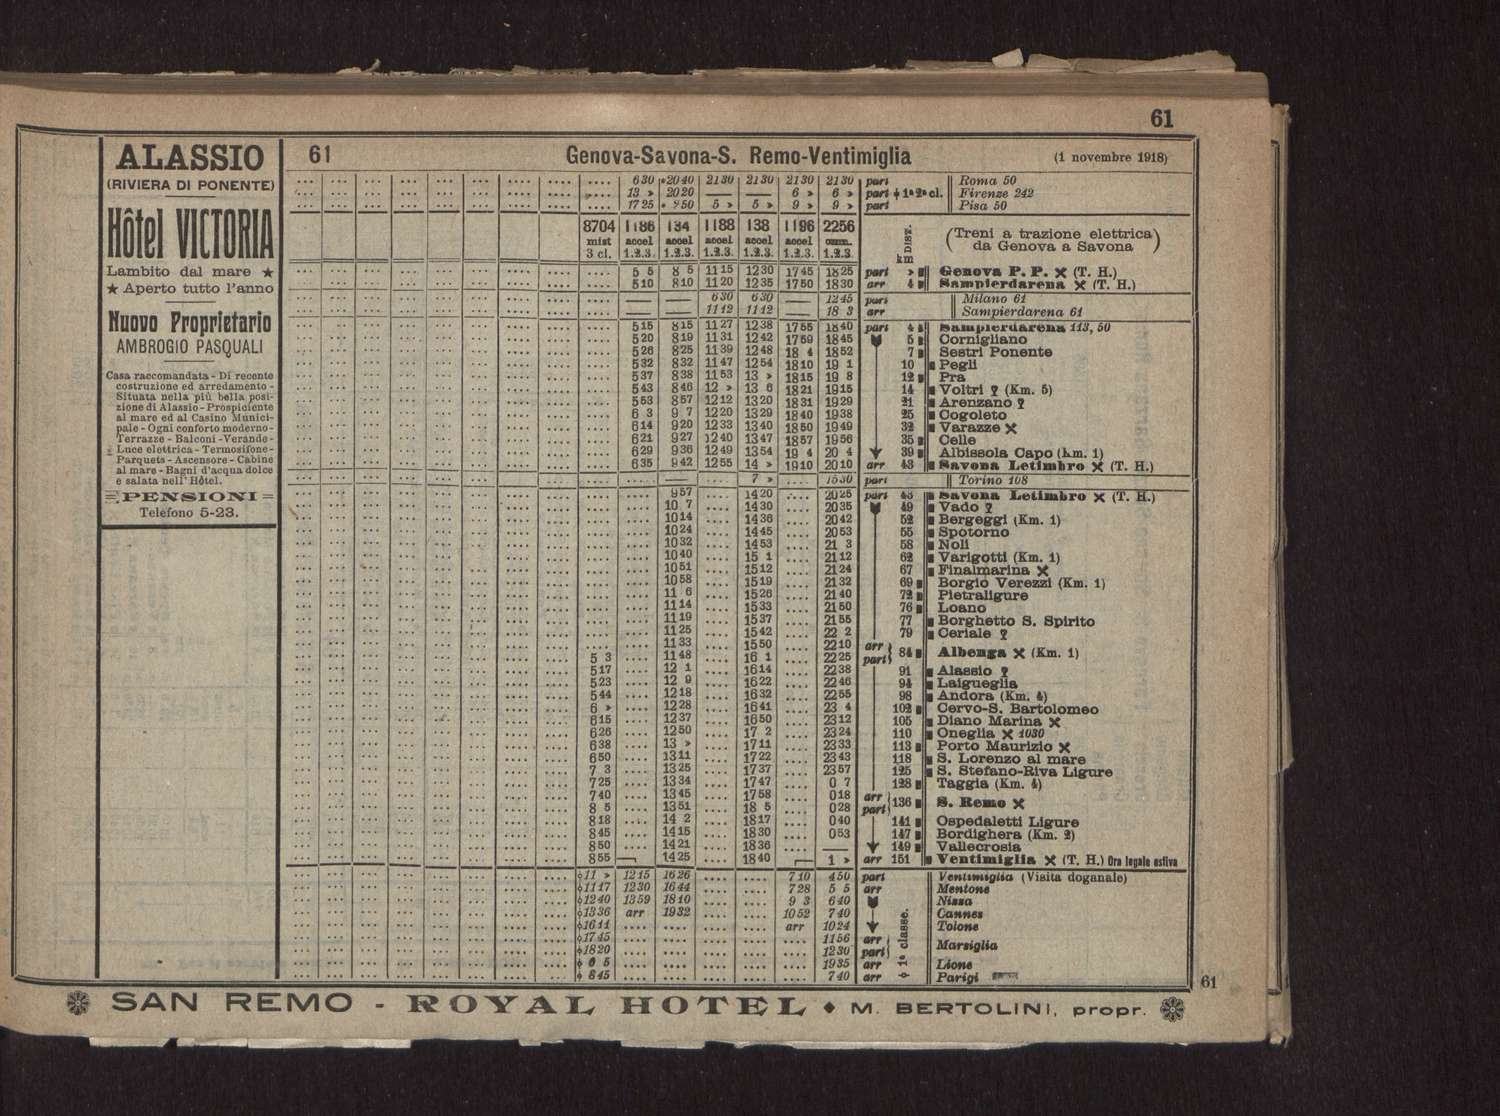 61
ALASSIO
(RIVIERA DI PONENTE)
Hôtel VICTORIA
Lambito dal mare ★
★ Aperto tutto l'anno
Nuovo Proprietario
AMBROGIO PASQUALI
Casa raccomandata - Di recente
costruzione ed arredamento -
Situata nella più bella posi-
zione di Alassio - Prospiciente
al mare ed al Casino Munici-
pale - Ogni conforto moderno -
Terrazze - Balconi - Verande -
Luce elettrica - Termosifone -
Parquets - Ascensore - Cabine
al mare - Bagni d'acqua dolce
e salata nell'Hôtel.
PENSIONI
Telefono 5-23.
61 Genova-Savona-S. Remo-Ventimiglia (1 novembre 1918)
630 2040 2130 2130 2130 2130 part Roma 50
13 » 2020 — — 6 » 6 » part 1ª 2ª cl. Firenze 242
1725 5 » 5 » 9 » 9 » part Pisa 50
8704 1186 134 1188 138 1196 2256 DIST. (Treni a trazione elettrica
mist accel accel accel accel accel omn. da Genova a Savona)
3 cl. 1.2.3. 1.2.3. 1.2.3. 1.2.3. 1.2.3. 1.2.3. km
5 5 8 5 1115 1230 1745 1825 part » Genova P. P. (T. H.)
510 810 1120 1235 1750 1830 arr 4 Sampierdarena (T. H.)
— — 630 630 — 1245 part Milano 61
1112 1112 18 3 arr Sampierdarena 61
515 815 1127 1238 1755 1840 part 4 Sampierdarena 113, 50
520 819 1131 1242 1759 1845 5 Cornigliano
526 825 1139 1248 18 4 1852 7 Sestri Ponente
532 832 1147 1254 1810 19 1 10 Pegli
537 838 1153 13 » 1815 19 8 12 Pra
543 846 12 » 13 6 1821 1915 14 Voltri (Km. 5)
553 857 1212 1320 1831 1929 21 Arenzano
6 3 9 7 1220 1329 1840 1938 25 Cogoleto
614 920 1233 1340 1850 1949 32 Varazze
621 927 1240 1347 1857 1956 35 Celle
629 936 1249 1354 19 4 20 4 39 Albissola Capo (km. 1)
635 942 1255 14 » 1910 2010 arr 43 Savona Letimbro (T. H.)
— 7 » 1530 part Torino 108
957 1420 2025 part 43 Savona Letimbro (T. H.)
10 7 1430 2035 49 Vado
1014 1436 2042 52 Bergeggi (Km. 1)
1024 1445 2053 55 Spotorno
1032 1453 21 3 58 Noli
1040 15 1 2112 62 Varigotti (Km. 1)
1051 1512 2124 67 Finalmarina
1058 1519 2132 69 Borgio Verezzi (Km. 1)
11 6 1526 2140 72 Pietraligure
1114 1533 2150 76 Loano
1119 1537 2155 77 Borghetto S. Spirito
1125 1542 22 2 79 Ceriale
1133 1550 2210 arr
5 3 1148 16 1 2225 part 84 Albenga (Km. 1)
517 12 1 1614 2238 91 Alassio
523 12 9 1622 2246 94 Laigueglia
544 1218 1632 2255 98 Andora (Km. 4)
6 » 1228 1641 23 4 102 Cervo-S. Bartolomeo
615 1237 1650 2312 105 Diano Marina
626 1250 17 2 2324 110 Oneglia 1030
638 13 » 1711 2333 113 Porto Maurizio
650 1311 1722 2343 118 S. Lorenzo al mare
7 3 1325 1737 2357 125 S. Stefano-Riva Ligure
725 1334 1747 0 7 128 Taggia (Km. 4)
740 1345 1758 018 arr 136 S. Remo
8 5 1351 18 5 028 part
818 14 2 1817 040 141 Ospedaletti Ligure
845 1415 1830 053 147 Bordighera (Km. 2)
850 1421 1836 — 149 Vallecrosia
855 1425 1840 1 » arr 151 Ventimiglia (T. H.) Ora legale estiva
11 » 1215 1626 710 450 part Ventimiglia (Visita doganale)
1117 1230 1644 728 5 5 arr Mentone
1240 1359 1810 9 3 640 Nizza
1336 arr 1932 1052 740 Cannes
1611 arr 1024 Tolone
1745 1156 arr Marsiglia
1820 1230 part
1935 arr Lione
845 740 arr Parigi
1ª classe.
61
SAN REMO - ROYAL HOTEL ♦ M. BERTOLINI, propr.